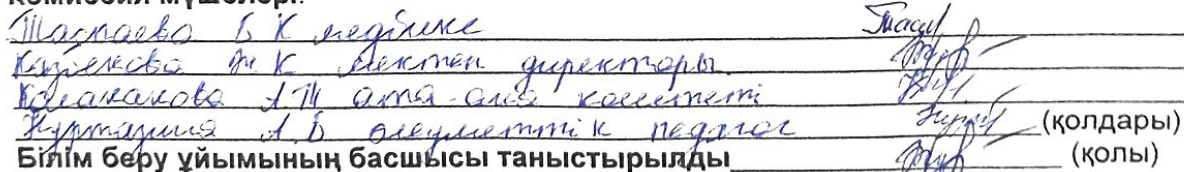 комиссия мүшелері:
Таспаева Б К медбике
Казбекова Ж К мектеп директоры
А Т ата-ана комитеті
Нуртазина А.Б әлеуметтік педагог (қолдары)
Білім беру ұйымының басшысы таныстырылды (қолы)